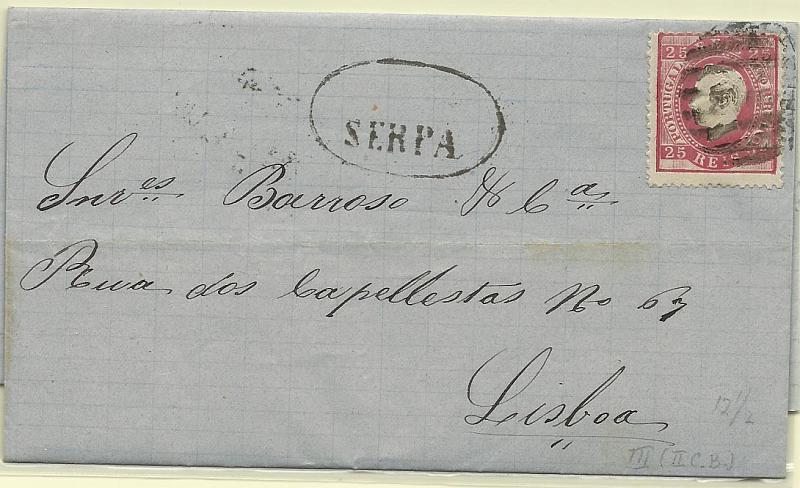 25 25
PORTUGAL
25 REIS
SERPA
Snr.es Barroso & C.as
Rua dos Capellestas No 67
Lisboa
12 1/2
III (II C.B.)